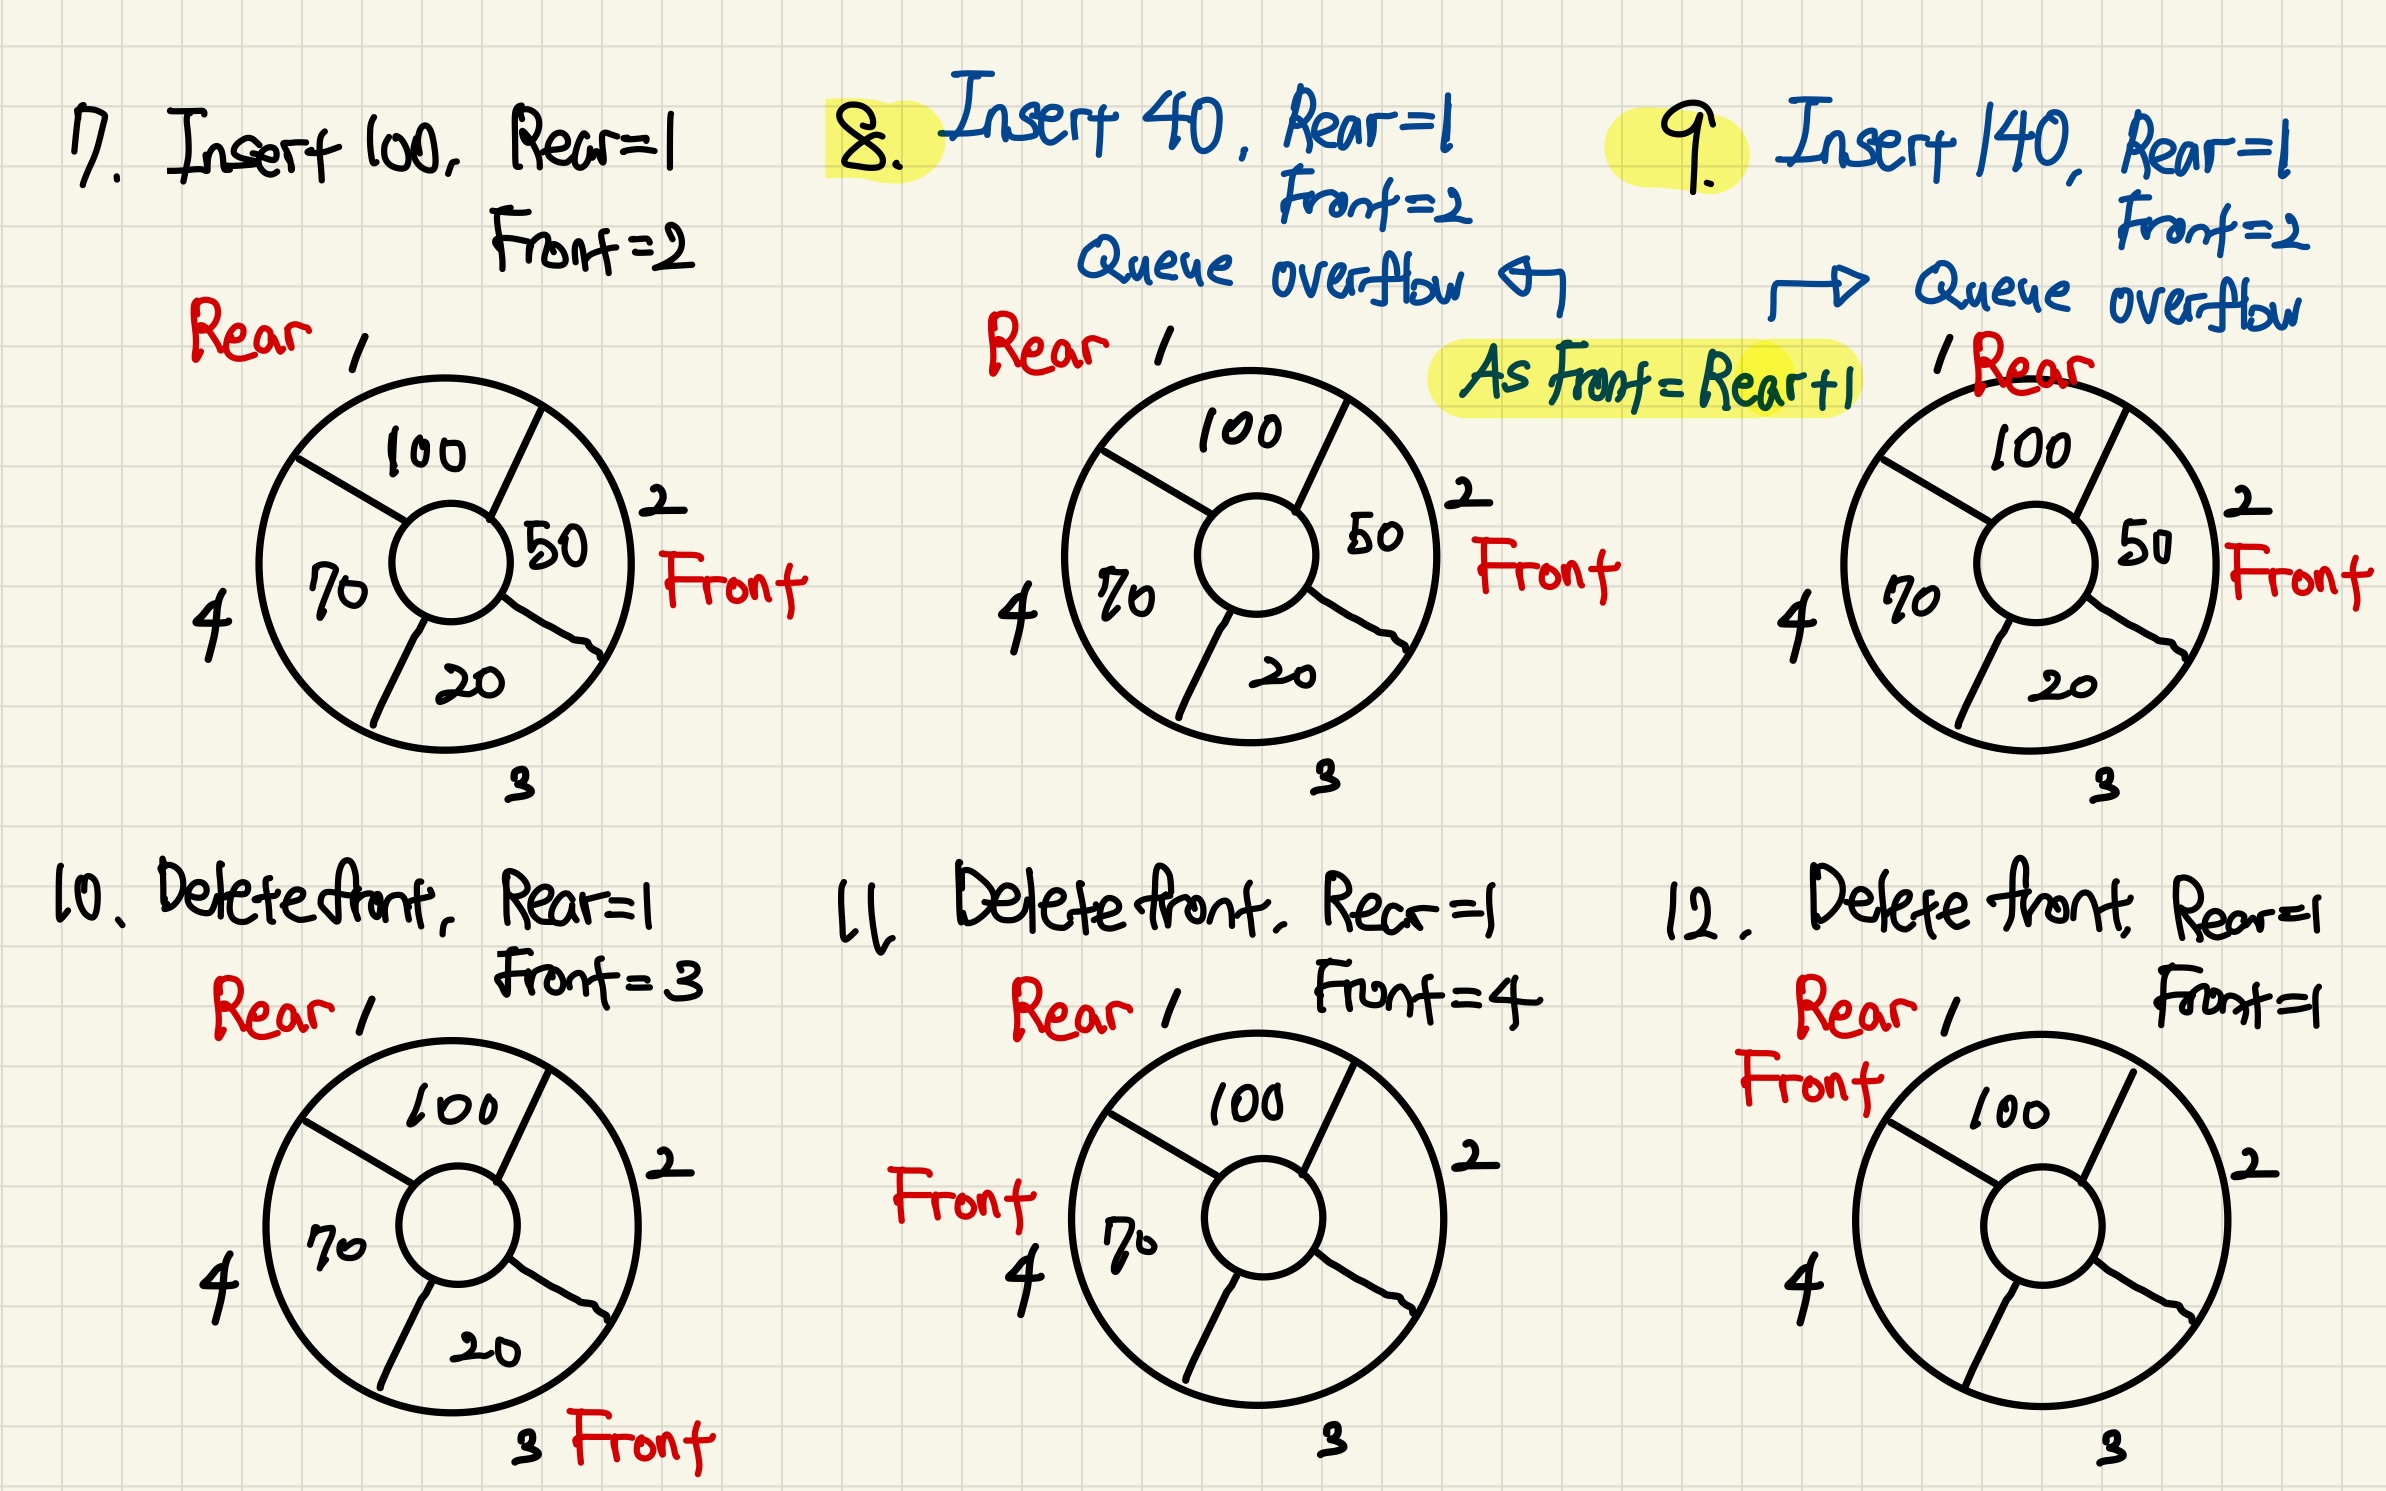 7. Insert 100, Rear=1
Front=2
Rear 1
100
2
50
Front
4
70
20
3
8. Insert 40, Rear=1
Front=2
Queue overflow
Rear 1
As Front=Rear+1
100
2
50
Front
4
70
20
3
9. Insert 140, Rear=1
Front=2
Queue overflow
1 Rear
100
2
50
Front
4
70
20
3
10. Delete front, Rear=1
Front=3
Rear 1
100
2
4
70
20
3 Front
11. Delete front. Rear=1
Front=4
Rear 1
100
2
Front
4
70
3
12. Delete front, Rear=1
Front=1
Rear 1
Front
100
2
4
3